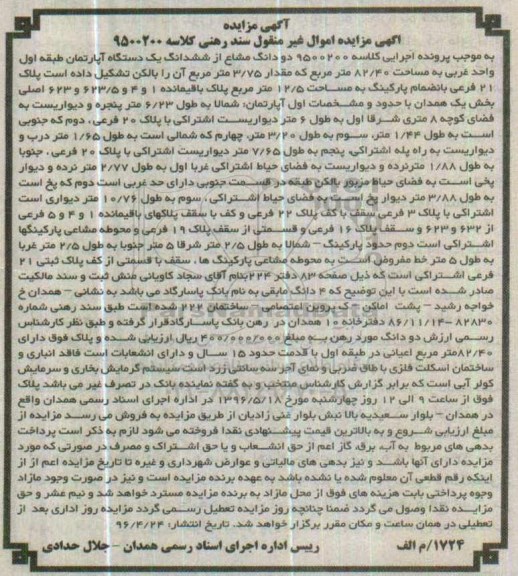 آگهی مزایده
آگهی مزایده اموال غیر منقول سند رهنی کلاسه ۹۵۰۰۲۰۰
به موجب پرونده اجرایی کلاسه ۹۵۰۰۲۰۰ دو دانگ مشاع از ششدانگ یک دستگاه آپارتمان طبقه اول
واحد غربی به مساحت ۸۲/۴۰ متر مربع که مقدار ۳/۷۵ متر مربع آن را بالکن تشکیل داده است پلاک
۲۱ فرعی بانضمام پارکینگ به مساحت ۱۲/۵ متر مربع پلاک باقیمانده ۱ و ۴ و ۶۲۳/۵ و ۶۲۳ اصلی
بخش یک همدان با حدود و مشخصات اول آپارتمان: شمالا به طول ۶/۲۳ متر پنجره و دیواریست به
فضای کوچه ۸ متری شرقا اول به طول ۶ متر دیواریست اشتراکی با پلاک ۲۰ فرعی ، دوم که جنوبی
است به طول ۱/۴۴ متر، سوم به طول ۳/۲۰ متر، چهارم که شمالی است به طول ۱/۶۵ متر درب و
دیواریست به راه پله اشتراکی، پنجم به طول ۷/۶۵ متر دیواریست اشتراکی با پلاک ۲۰ فرعی ، جنوبا
به طول ۱/۸۸ مترنرده و دیواریست به فضای حیاط اشتراکی غربا اول به طول ۲/۷۷ متر نرده و دیوار
پخی است به فضای حیاط مزبور بالکن طبقه در قسمت جنوبی دارای حد غربی است دوم که پخ است
به طول ۳/۸۸ متر دیوار پخ است به فضای حیاط اشتراکی ، سوم به طول ۱۰/۷۶ متر دیواری است
اشتراکی با پلاک ۳ فرعی سقف با کف پلاک ۲۲ فرعی و کف با سقف پلاکهای باقیمانده ۱ و ۴ و ۵ فرعی
از ۶۳۲ و ۶۲۳ و سقف پلاک ۱۶ فرعی و قسمتی از سقف پلاک ۱۹ فرعی و محوطه مشاعی پارکینگها
اشتراکی است دوم حدود پارکینگ – شمالا به طول ۲/۵ متر شرقا ۵ متر جنوبا به طول ۲/۵ متر غربا
به طول ۵ متر خط مفروض است به محوطه مشاعی پارکینگ ها ، سقف با قسمتی از کف پلاک ثبتی ۲۱
فرعی اشتراکی است که ذیل صفحه ۸۳ دفتر ۲۲۴ بنام آقای سجاد کاویانی منش ثبت و سند مالکیت
صادر شده است با این توضیح که ۴ دانگ مابقی به نام بانک پاسارگاد می باشد به نشانی – همدان خ
خواجه رشید – پشت اماکن – ک پروین اعتصامی – ساختمان ۲۲۳ شده است طبق سند رهنی شماره
۸۲۸۳۰ – ۸۶/۱۱/۱۴ دفترخانه ۱۰ همدان در رهن بانک پاسارگاد قرار گرفته و طبق نظر کارشناس
رسمی ارزش دو دانگ مورد رهن به مبلغ ۴۰۰/۰۰۰/۰۰۰ ریال ارزیابی شده و پلاک فوق دارای
۸۲/۴۰ متر مربع اعیانی در طبقه اول با قدمت حدود ۱۵ سال و دارای انشعابات است فاقد انباری و
ساختمان اسکلت فلزی با طاق ضربی و نمای آجر سه سانتی زرد است سیستم گرمایش بخاری و سرمایش
کولر آبی است که برابر گزارش کارشناس منتخب و به گفته نماینده بانک در تصرف غیر می باشد پلاک
فوق از ساعت ۹ الی ۱۲ روز چهارشنبه مورخ ۱۳۹۶/۵/۱۸ در اداره اجرای اسناد رسمی همدان واقع
در همدان – بلوار سعیدیه بالا نبش بلوار غنی زادیان از طریق مزایده به فروش می رسد مزایده از
مبلغ ارزیابی شروع و به بالاترین قیمت پیشنهادی نقدا فروخته می شود لازم به ذکر است پرداخت
بدهی های مربوط به آب، برق، گاز اعم از حق انشعاب و یا حق اشتراک و مصرف در صورتی که مورد
مزایده دارای آنها باشد و نیز بدهی های مالیاتی و عوارض شهرداری و غیره تا تاریخ مزایده اعم از از
اینکه رقم قطعی آن معلوم شده یا نشده باشد به عهده برنده مزایده است و نیز در صورت وجود مازاد
وجوه پرداختی بابت هزینه های فوق از محل مازاد به برنده مزایده مسترد خواهد شد و نیم عشر و حق
مزایده نقدا وصول می گردد ضمنا چنانچه روز مزایده تعطیل رسمی گردد مزایده روز اداری بعد از
تعطیلی در همان ساعت و مکان مقرر برگزار خواهد شد. تاریخ انتشار: ۹۶/۴/۲۴
۱۷۲۴/م الف رییس اداره اجرای اسناد رسمی همدان – جلال حدادی